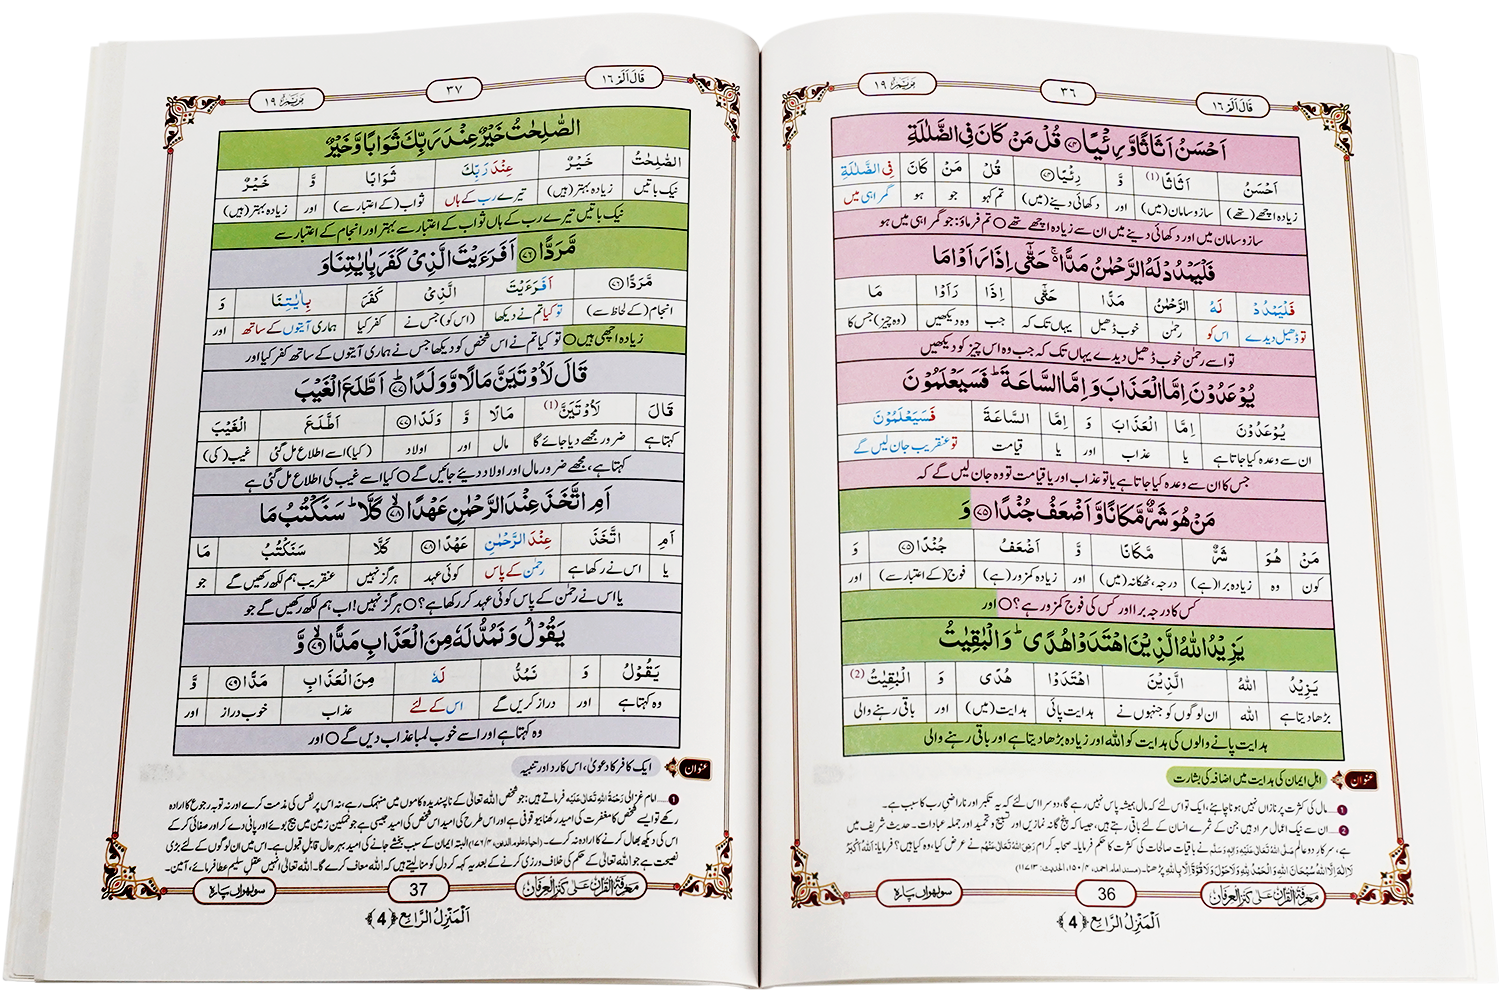 قَالَ اَلَمْ ١٦
٣٦
مَرْيَم ١٩
اَحْسَنُ اَثَاثًا وَّ رِءْيًا ﴿٧٤﴾ قُلْ مَنْ كَانَ فِی الضَّلٰلَةِ
اَحْسَنُ اَثَاثًا (1) وَّ رِءْيًا ﴿٧٤﴾ قُلْ مَنْ كَانَ فِی الضَّلٰلَةِ
زیادہ اچھے (تھے) سازوسامان (میں) اور دکھائی دینے (میں) تم کہو جو ہو گمراہی میں
سازوسامان میں اور دکھائی دینے میں ان سے زیادہ اچھے تھے ○ تم فرماؤ: جو گمراہی میں ہو
فَلْیَمْدُدْ لَهُ الرَّحْمٰنُ مَدًّا ۚ۬ حَتّٰۤی اِذَا رَاَوْا مَا
فَلْیَمْدُدْ لَهُ الرَّحْمٰنُ مَدًّا حَتّٰۤی اِذَا رَاَوْا مَا
تو ڈھیل دیدے اس کو رحمٰن خوب ڈھیل یہاں تک کہ جب وہ دیکھیں (وہ چیز) جس کا
تو اسے رحمٰن خوب ڈھیل دیدے یہاں تک کہ جب وہ اس چیز کو دیکھیں
یُوْعَدُوْنَ اِمَّا الْعَذَابَ وَ اِمَّا السَّاعَةَ ؕ فَسَیَعْلَمُوْنَ
یُوْعَدُوْنَ اِمَّا الْعَذَابَ وَ اِمَّا السَّاعَةَ فَسَیَعْلَمُوْنَ
ان سے وعدہ کیا جاتا ہے یا عذاب اور یا قیامت تو عنقریب جان لیں گے
جس کا ان سے وعدہ کیا جاتا ہے یا تو عذاب اور یا قیامت تو وہ جان لیں گے کہ
مَنْ هُوَ شَرٌّ مَّكَانًا وَّ اَضْعَفُ جُنْدًا ﴿٧٥﴾ وَ
مَنْ هُوَ شَرٌّ مَّكَانًا وَّ اَضْعَفُ جُنْدًا ﴿٧٥﴾ وَ
کون وہ زیادہ برا (ہے) درجہ، ٹھکانہ (میں) اور زیادہ کمزور (ہے) فوج (کے اعتبار سے) اور
کس کا درجہ برا اور کس کی فوج کمزور ہے؟ ○ اور
یَزِیْدُ اللّٰهُ الَّذِیْنَ اهْتَدَوْا هُدًی ؕ وَ الْبٰقِیٰتُ
یَزِیْدُ اللّٰهُ الَّذِیْنَ اهْتَدَوْا هُدًی وَ الْبٰقِیٰتُ (2)
بڑھا دیتا ہے اللّٰه ان لوگوں کو جنہوں نے ہدایت پائی ہدایت (میں) اور باقی رہنے والی
ہدایت پانے والوں کی ہدایت کو اللّٰه اور زیادہ بڑھا دیتا ہے اور باقی رہنے والی
عنوان اہلِ ایمان کی ہدایت میں اضافہ کی بشارت
1 ..... مال کی کثرت پر نازاں نہیں ہونا چاہئے، ایک تو اس لئے کہ مال ہمیشہ پاس نہیں رہے گا، دوسرا اس لئے کہ یہ تکبر اور ناراضیِ رب کا سبب ہے۔
2 ..... ان سے نیک اعمال مراد ہیں جن کے ثمرے انسان کے لئے باقی رہتے ہیں، جیسا کہ پنج گانہ نمازیں اور تسبیح و تحمید اور جملہ عبادات۔ حدیث شریف میں
ہے، سرکارِ دو عالَم صَلَّی اللّٰهُ تَعَالٰی عَلَیْهِ وَ اٰلِهٖ وَسَلَّم نے باقیات صالحات کی کثرت کا حکم فرمایا۔ صحابہ کرام رَضِیَ اللّٰهُ تَعَالٰی عَنْهُمْ نے عرض کی: وہ کیا ہیں؟ فرمایا: اَللّٰهُ اَكْبَرُ
لَا اِلٰهَ اِلَّا اللّٰهُ سُبْحَانَ اللّٰهِ وَالْحَمْدُ لِلّٰهِ وَلَا حَوْلَ وَلَا قُوَّةَ اِلَّا بِاللّٰهِ پڑھنا۔ (مسند امام احمد، ۴/۱۵۰، الحدیث: ۱۱۷۱۳)
معرفۃ القرآن علی کنز العرفان
36
سولہواں پارہ
اَلْمَنْزِلُ الرَّابِع ﴿4﴾
قَالَ اَلَمْ ١٦
٣٧
مَرْيَم ١٩
الصّٰلِحٰتُ خَیْرٌ عِنْدَ رَبِّكَ ثَوَابًا وَّ خَیْرٌ
الصّٰلِحٰتُ خَیْرٌ عِنْدَ رَبِّكَ ثَوَابًا وَّ خَیْرٌ
نیک باتیں زیادہ بہتر (ہیں) تیرے رب کے ہاں ثواب (کے اعتبار سے) اور زیادہ بہتر (ہیں)
نیک باتیں تیرے رب کے ہاں ثواب کے اعتبار سے بہتر اور انجام کے اعتبار سے
مَّرَدًّا ﴿٧٦﴾ اَفَرَءَیْتَ الَّذِیْ كَفَرَ بِاٰیٰتِنَا وَ
مَّرَدًّا ﴿٧٦﴾ اَفَرَءَیْتَ الَّذِیْ كَفَرَ بِاٰیٰتِنَا وَ
انجام (کے لحاظ سے) تو کیا تم نے دیکھا (اس کو) جس نے کفر کیا ہماری آیتوں کے ساتھ اور
زیادہ اچھی ہیں ○ تو کیا تم نے اس شخص کو دیکھا جس نے ہماری آیتوں کے ساتھ کفر کیا اور
قَالَ لَاُوْتَیَنَّ مَالًا وَّ وَلَدًا ﴿٧٧﴾ؕ اَطَّلَعَ الْغَیْبَ
قَالَ لَاُوْتَیَنَّ (1) مَالًا وَّ وَلَدًا ﴿٧٧﴾ اَطَّلَعَ الْغَیْبَ
کہتا ہے ضرور مجھے دیا جائے گا مال اور اولاد (کیا) اسے اطلاع مل گئی غیب (کی)
کہتا ہے، مجھے ضرور مال اور اولاد دیئے جائیں گے ○ کیا اسے غیب کی اطلاع مل گئی ہے
اَمِ اتَّخَذَ عِنْدَ الرَّحْمٰنِ عَهْدًا ﴿٧٨﴾ۙ كَلَّا ؕ سَنَكْتُبُ مَا
اَمِ اتَّخَذَ عِنْدَ الرَّحْمٰنِ عَهْدًا ﴿٧٨﴾ كَلَّا سَنَكْتُبُ مَا
یا اس نے رکھا ہے رحمٰن کے پاس کوئی عہد ہرگز نہیں عنقریب ہم لکھ رکھیں گے جو
یا اس نے رحمٰن کے پاس کوئی عہد کر رکھا ہے؟ ○ ہرگز نہیں! اب ہم لکھ رکھیں گے جو
یَقُوْلُ وَ نَمُدُّ لَهٗ مِنَ الْعَذَابِ مَدًّا ﴿٧٩﴾ۙ وَّ
یَقُوْلُ وَ نَمُدُّ لَهٗ مِنَ الْعَذَابِ مَدًّا ﴿٧٩﴾ وَّ
وہ کہتا ہے اور دراز کریں گے اس کے لئے عذاب خوب دراز اور
وہ کہتا ہے اور اسے خوب لمبا عذاب دیں گے ○ اور
عنوان ایک کافر کا دعویٰ، اس کا رد اور تنبیہ
1 ..... امام غزالی رَحْمَةُ اللّٰهِ تَعَالٰی عَلَیْه فرماتے ہیں: جو شخص اللّٰه تعالیٰ کے ناپسندیدہ کاموں میں منہمک رہے، نہ اس پر نفس کی مذمت کرے اور نہ توبہ و رجوع کا ارادہ
رکھے تو ایسے شخص کا مغفرت کی امید رکھنا بیوقوفی ہے اور اس طرح کی امید اس شخص کی امید جیسی ہے جو نمکین زمین میں بیج بوئے اور پانی دے کر اور صفائی کر کے
اس کی دیکھ بھال کرنے کا ارادہ نہ کرے۔ (احیاء علوم الدین، ۴/۱۷۶) البتہ ایمان کے سبب بخشے جانے کی امید بہرحال قابلِ قبول ہے۔ اس میں ان لوگوں کے لئے بڑی
نصیحت ہے جو اللّٰه تعالیٰ کے حکم کی خلاف ورزی کرنے کے بعد یہ کہہ کر دل کو منا لیتے ہیں کہ اللّٰه معاف کرے گا۔ اللّٰه تعالیٰ انہیں عقلِ سلیم عطا فرمائے، آمین۔
معرفۃ القرآن علی کنز العرفان
37
سولہواں پارہ
اَلْمَنْزِلُ الرَّابِع ﴿4﴾